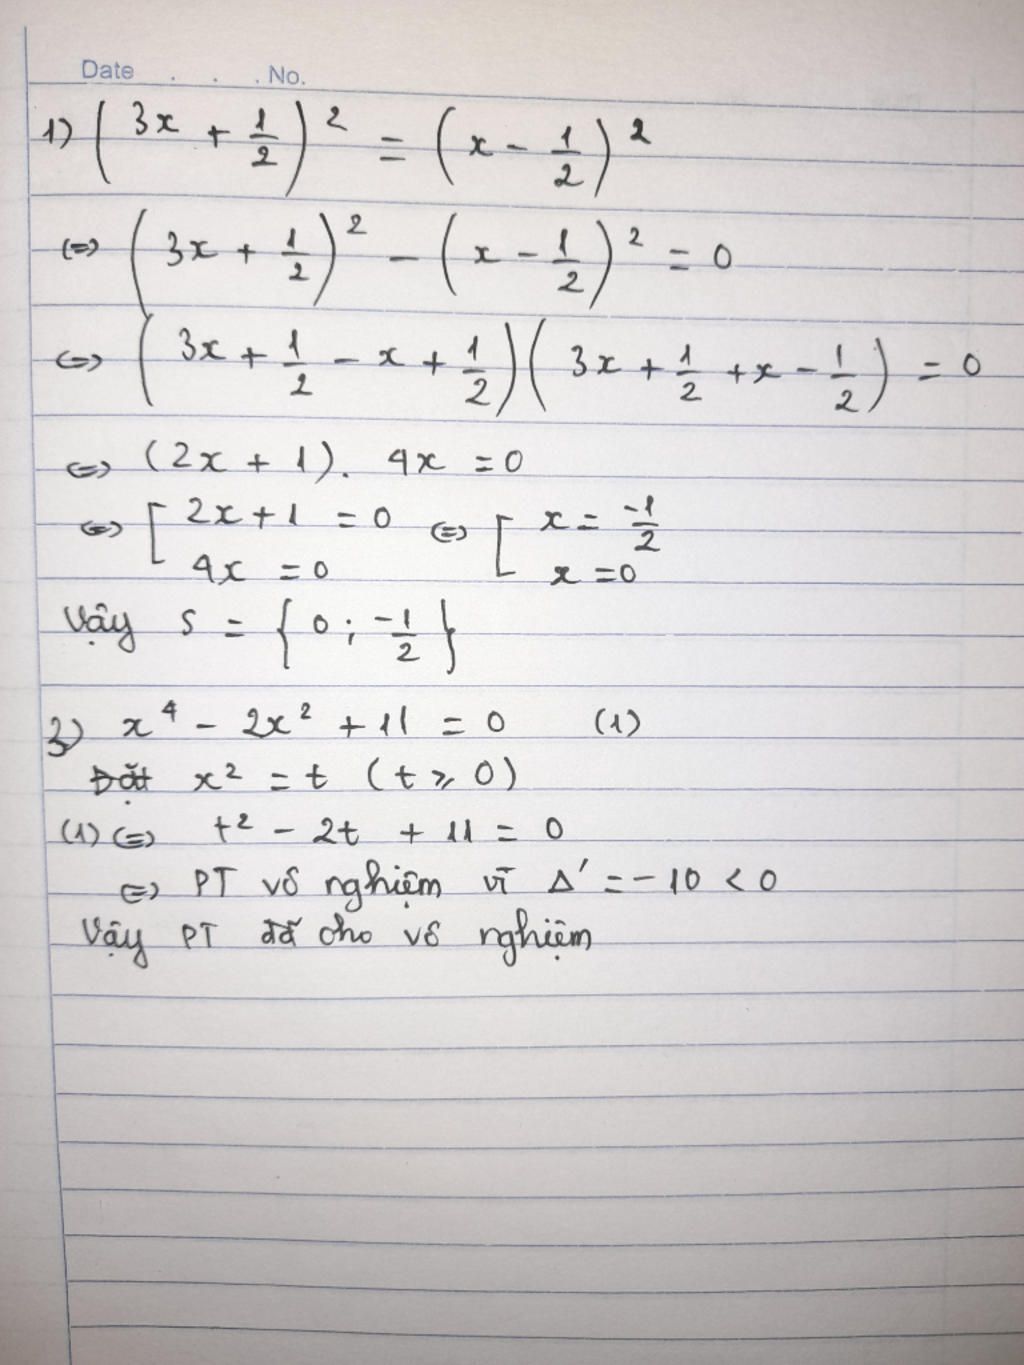 Date . . . No.
1) (3x + 1/2)² = (x - 1/2)²
(=) (3x + 1/2)² - (x - 1/2)² = 0
(=) (3x + 1/2 - x + 1/2)(3x + 1/2 + x - 1/2) = 0
(=) (2x + 1). 4x = 0
(=) [ 2x + 1 = 0 (=) [ x = -1/2
4x = 0 x = 0
Vậy S = { 0 ; -1/2 }
3) x⁴ - 2x² + 11 = 0 (1)
Đặt x² = t (t ⩾ 0)
(1) (=) t² - 2t + 11 = 0
(=) PT vô nghiệm vì Δ' = -10 < 0
Vậy PT đã cho vô nghiệm